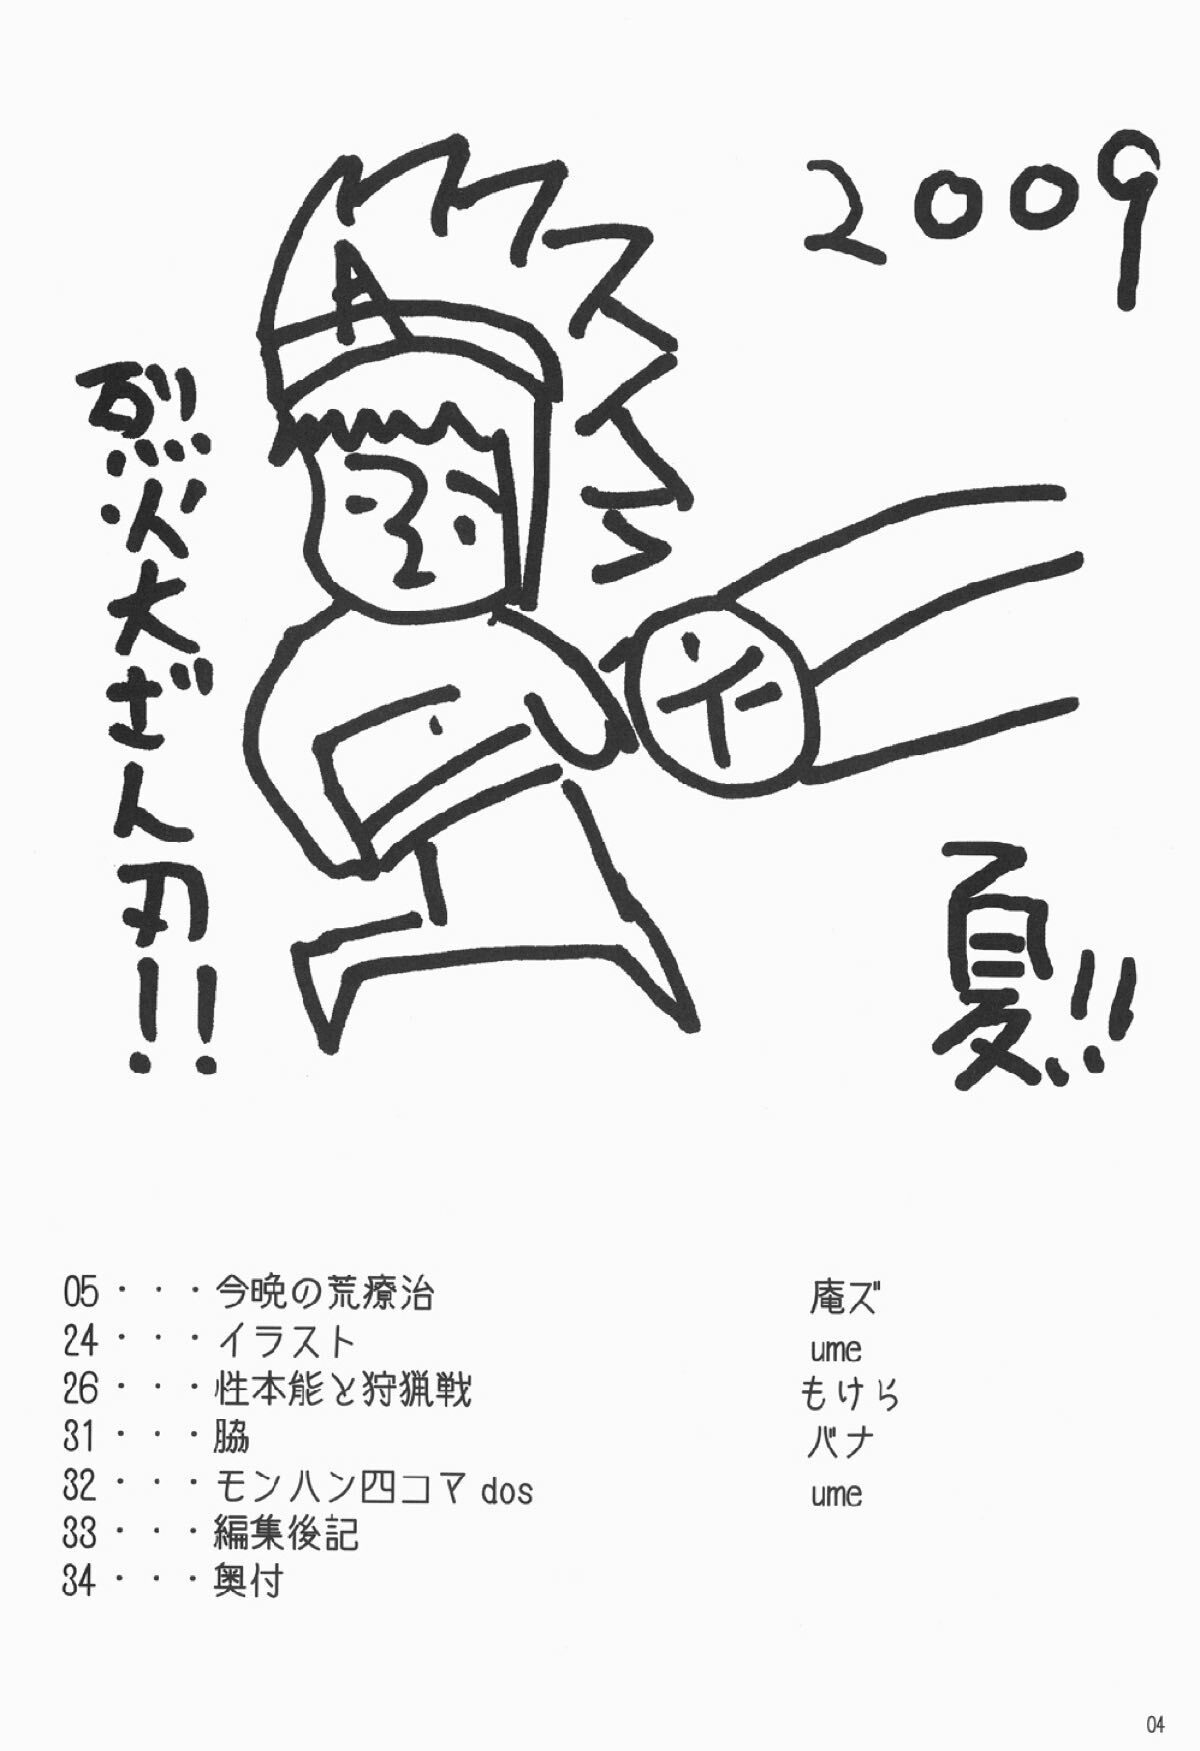 2009
A
烈火大ざん刃!!
夏!!
05・・・今晩の荒療治 庵ズ
24・・・イラスト ume
26・・・性本能と狩猟戦 もけら
31・・・脇 バナ
32・・・モンハン四コマ dos ume
33・・・編集後記
34・・・奥付
04